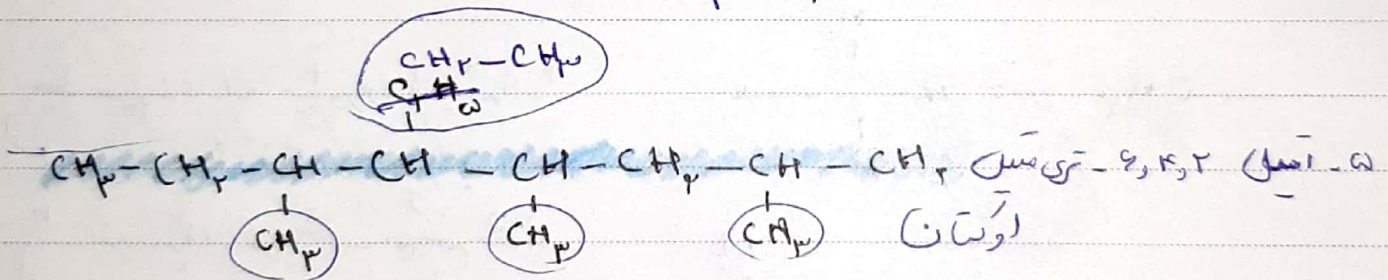 CH۲-CH۳
C۲H۵
CH۳-CH۲-CH-CH-CH-CH۲-CH-CH۳ ۵- اتیل ۲,۴,۶ - تری متیل
CH۳ CH۳ CH۳ اوکتان